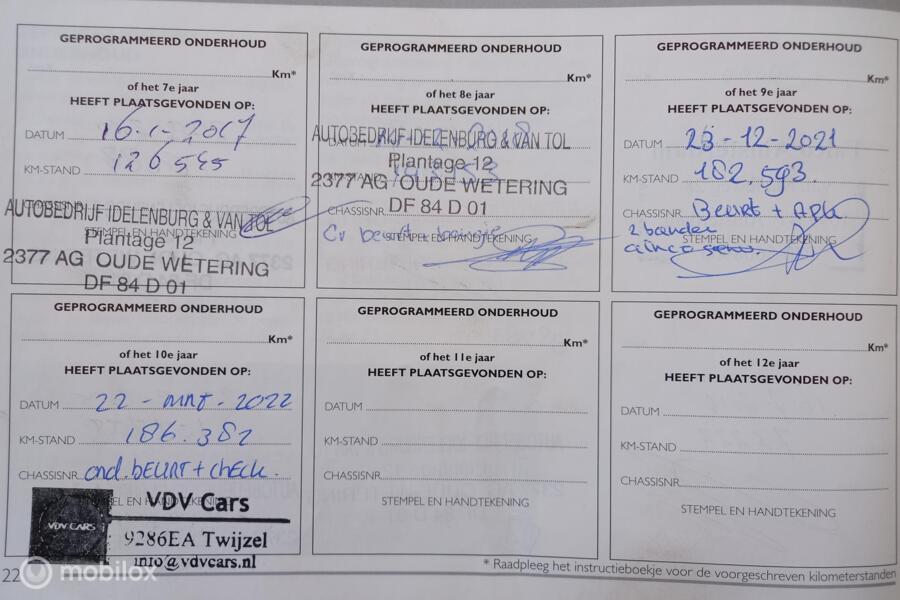 GEPROGRAMMEERD ONDERHOUD
Km*
of het 7e jaar
HEEFT PLAATSGEVONDEN OP:
DATUM 16-1-2017
KM-STAND 126545
AUTOBEDRIJF IDELENBURG & VAN TOL
STEMPEL EN HANDTEKENING
Plantage 12
2377 AG OUDE WETERING
DF 84 D 01
GEPROGRAMMEERD ONDERHOUD
Km*
of het 8e jaar
HEEFT PLAATSGEVONDEN OP:
AUTOBEDRIJF IDELENBURG & VAN TOL
Plantage 12
2377 AG OUDE WETERING
CHASSISNR. DF 84 D 01
STEMPEL EN HANDTEKENING
GEPROGRAMMEERD ONDERHOUD
Km*
of het 9e jaar
HEEFT PLAATSGEVONDEN OP:
DATUM 23-12-2021
KM-STAND 182.593.
CHASSISNR. Beurt + APK
2 banden
STEMPEL EN HANDTEKENING
GEPROGRAMMEERD ONDERHOUD
Km*
of het 10e jaar
HEEFT PLAATSGEVONDEN OP:
DATUM 22 - MRT - 2022
KM-STAND 186.382
CHASSISNR. ond. BEURT + CHECK.
VDV CARS
VDV Cars
9286EA Twijzel
info@vdvcars.nl
GEPROGRAMMEERD ONDERHOUD
Km*
of het 11e jaar
HEEFT PLAATSGEVONDEN OP:
DATUM
KM-STAND
CHASSISNR.
STEMPEL EN HANDTEKENING
GEPROGRAMMEERD ONDERHOUD
Km*
of het 12e jaar
HEEFT PLAATSGEVONDEN OP:
DATUM
KM-STAND
CHASSISNR.
STEMPEL EN HANDTEKENING
22
* Raadpleeg het instructieboekje voor de voorgeschreven kilometerstanden
mobilox